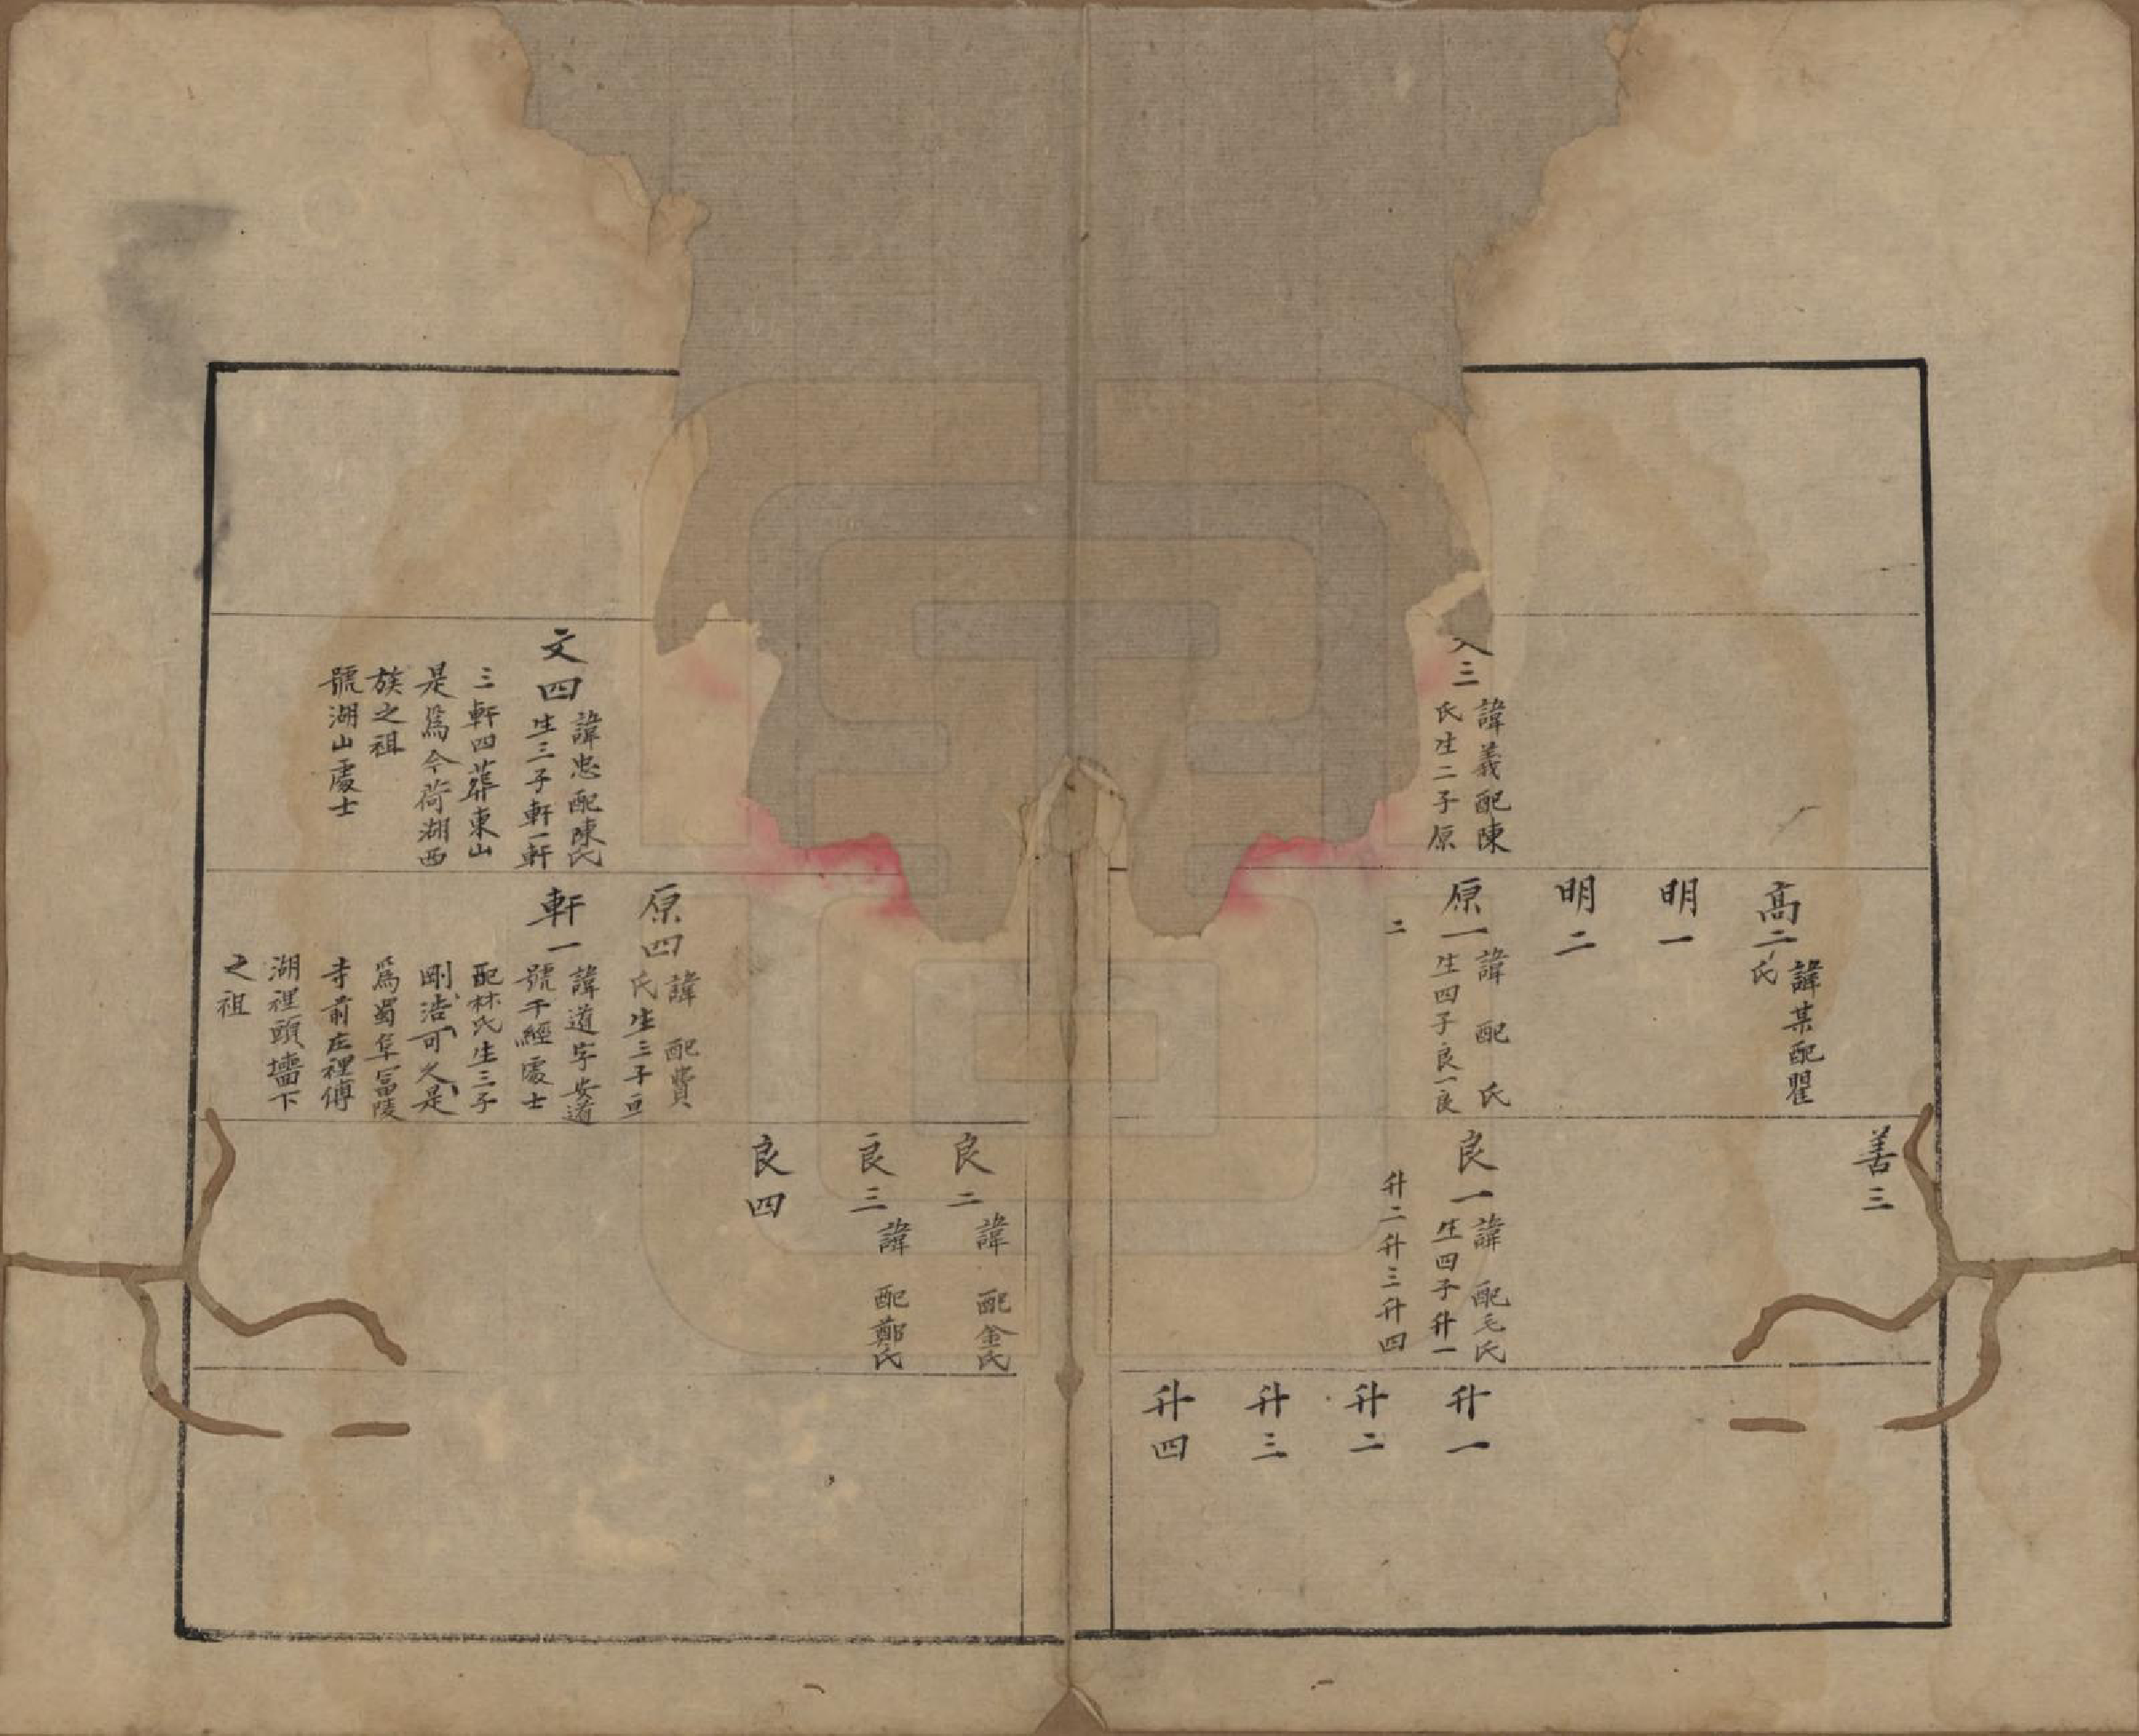 三
諱義配陳
氏生二子原
高二
諱某配瞿
氏
明一
明二
原一
諱 配 氏
生四子良一良
二
善三
良一
諱 配毛氏
生四子升一
升二升三升四
升一
升二
升三
升四
文四
諱忠配陳氏
生三子軒一軒
三軒四葬東山
是為今荷湖西
族之祖
號湖山處士
原四
諱 配費
氏生三子亘
軒一
諱道字安道
號干經處士
配林氏生三子
剛浩可久是
為蜀阜富陵
寺前庄裡傅
湖裡頭墻下
之祖
良二
諱 配金氏
良三
諱 配鄭氏
良四